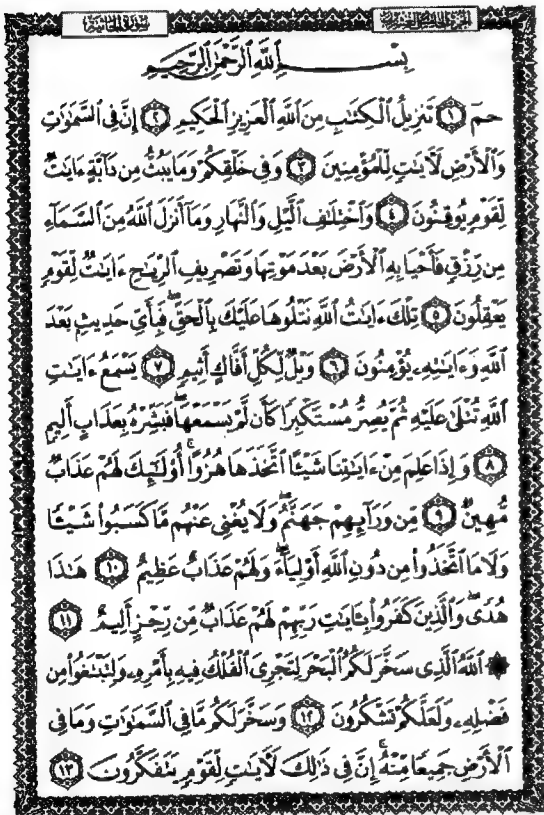 سورة الجاثية
الجزء الخامس والعشرون
بِسْمِ اللَّهِ الرَّحْمَٰنِ الرَّحِيمِ
حمٓ ١ تَنزِيلُ ٱلْكِتَٰبِ مِنَ ٱللَّهِ ٱلْعَزِيزِ ٱلْحَكِيمِ ٢ إِنَّ فِى ٱلسَّمَٰوَٰتِ
وَٱلْأَرْضِ لَءَايَٰتٍ لِّلْمُؤْمِنِينَ ٣ وَفِى خَلْقِكُمْ وَمَا يَبُثُّ مِن دَآبَّةٍ ءَايَٰتٌ
لِّقَوْمٍ يُوقِنُونَ ٤ وَٱخْتِلَٰفِ ٱلَّيْلِ وَٱلنَّهَارِ وَمَآ أَنزَلَ ٱللَّهُ مِنَ ٱلسَّمَآءِ
مِن رِّزْقٍ فَأَحْيَا بِهِ ٱلْأَرْضَ بَعْدَ مَوْتِهَا وَتَصْرِيفِ ٱلرِّيَٰحِ ءَايَٰتٌ لِّقَوْمٍ
يَعْقِلُونَ ٥ تِلْكَ ءَايَٰتُ ٱللَّهِ نَتْلُوهَا عَلَيْكَ بِٱلْحَقِّ ۖ فَبِأَىِّ حَدِيثٍۭ بَعْدَ
ٱللَّهِ وَءَايَٰتِهِۦ يُؤْمِنُونَ ٦ وَيْلٌ لِّكُلِّ أَفَّاكٍ أَثِيمٍ ٧ يَسْمَعُ ءَايَٰتِ
ٱللَّهِ تُتْلَىٰ عَلَيْهِ ثُمَّ يُصِرُّ مُسْتَكْبِرًا كَأَن لَّمْ يَسْمَعْهَا ۖ فَبَشِّرْهُ بِعَذَابٍ أَلِيمٍ
٨ وَإِذَا عَلِمَ مِنْ ءَايَٰتِنَا شَيْـًٔا ٱتَّخَذَهَا هُزُوًا ۚ أُو۟لَٰٓئِكَ لَهُمْ عَذَابٌ
مُّهِينٌ ٩ مِّن وَرَآئِهِمْ جَهَنَّمُ ۖ وَلَا يُغْنِى عَنْهُم مَّا كَسَبُوا۟ شَيْـًٔا
وَلَا مَا ٱتَّخَذُوا۟ مِن دُونِ ٱللَّهِ أَوْلِيَآءَ ۖ وَلَهُمْ عَذَابٌ عَظِيمٌ ١٠ هَٰذَا
هُدًى ۖ وَٱلَّذِينَ كَفَرُوا۟ بِـَٔايَٰتِ رَبِّهِمْ لَهُمْ عَذَابٌ مِّن رِّجْزٍ أَلِيمٌ ١١
۞ ٱللَّهُ ٱلَّذِى سَخَّرَ لَكُمُ ٱلْبَحْرَ لِتَجْرِىَ ٱلْفُلْكُ فِيهِ بِأَمْرِهِۦ وَلِتَبْتَغُوا۟ مِن
فَضْلِهِۦ وَلَعَلَّكُمْ تَشْكُرُونَ ١٢ وَسَخَّرَ لَكُم مَّا فِى ٱلسَّمَٰوَٰتِ وَمَا فِى
ٱلْأَرْضِ جَمِيعًا مِّنْهُ ۚ إِنَّ فِى ذَٰلِكَ لَءَايَٰتٍ لِّقَوْمٍ يَتَفَكَّرُونَ ١٣